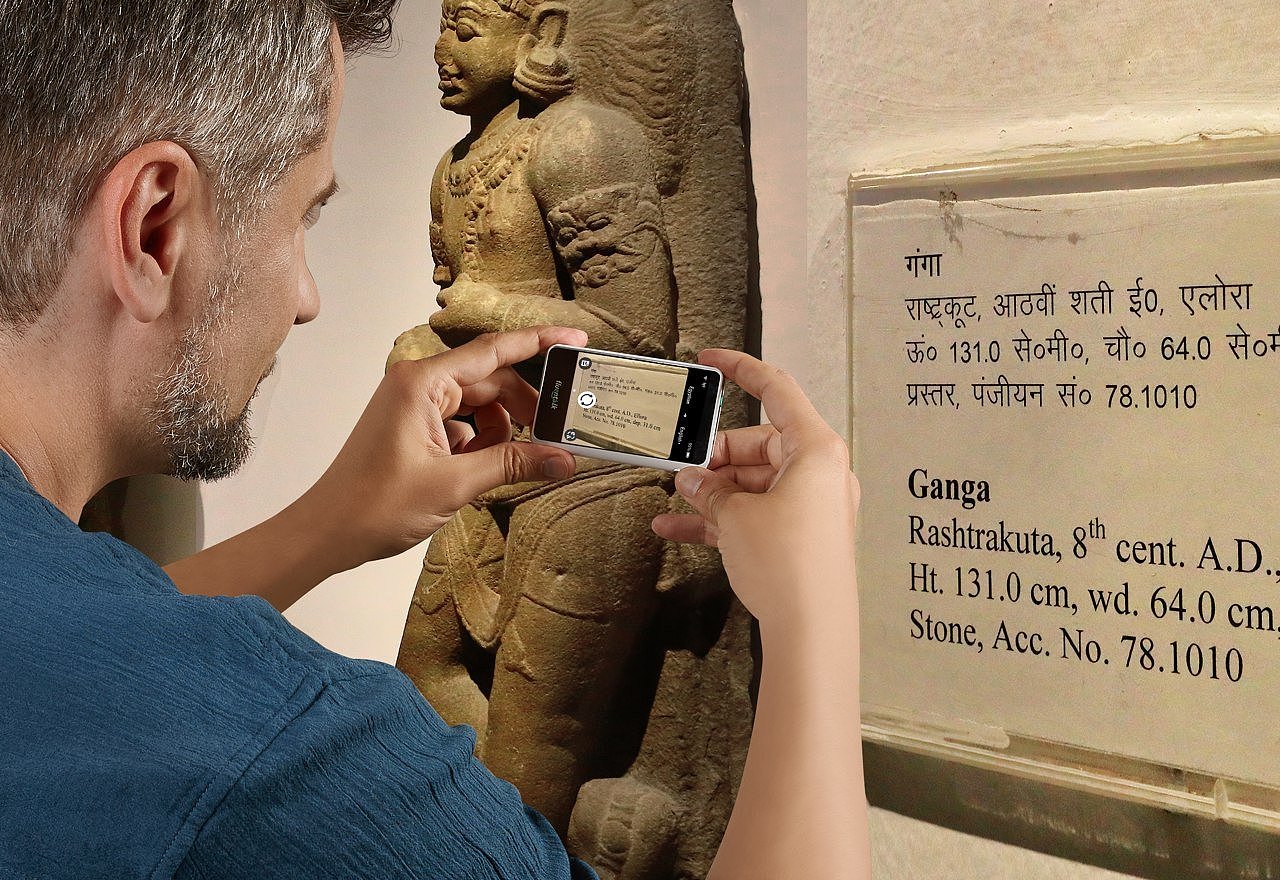 गंगा
राष्ट्रकूट, आठवीं शती ई0, एलोरा
ऊं० 131.0 से०मी०, चौ० 64.0 से०म
प्रस्तर, पंजीयन सं० 78.1010
Ganga
Rashtrakuta, 8th cent. A.D.,
Ht. 131.0 cm, wd. 64.0 cm,
Stone, Acc. No. 78.1010